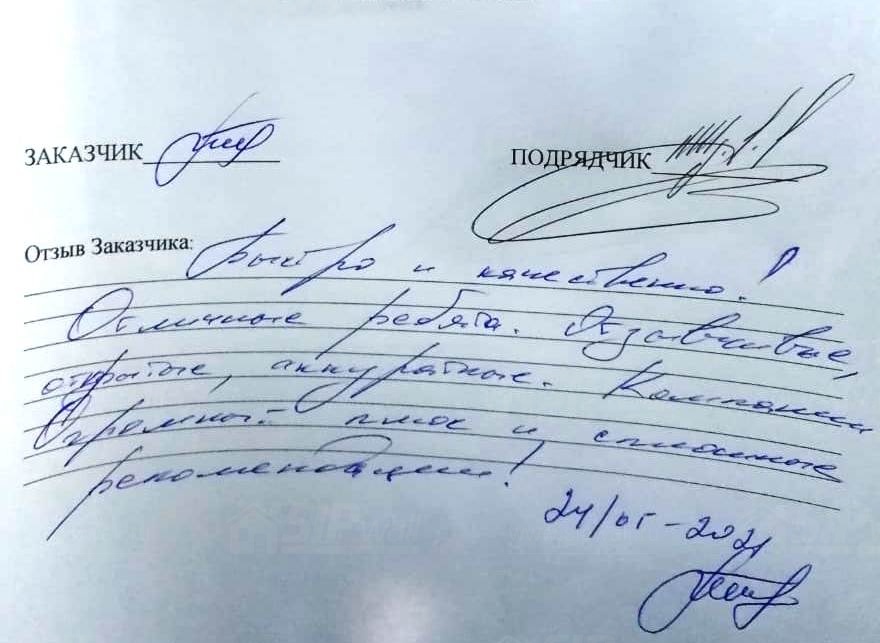 ЗАКАЗЧИК ПОДРЯДЧИК
Отзыв Заказчика:
Быстро и качественно!
Отличные ребята. Отзывчивые,
открытые, аккуратные. Компании
Огромный плюс и сплошные
рекомендации!
2021